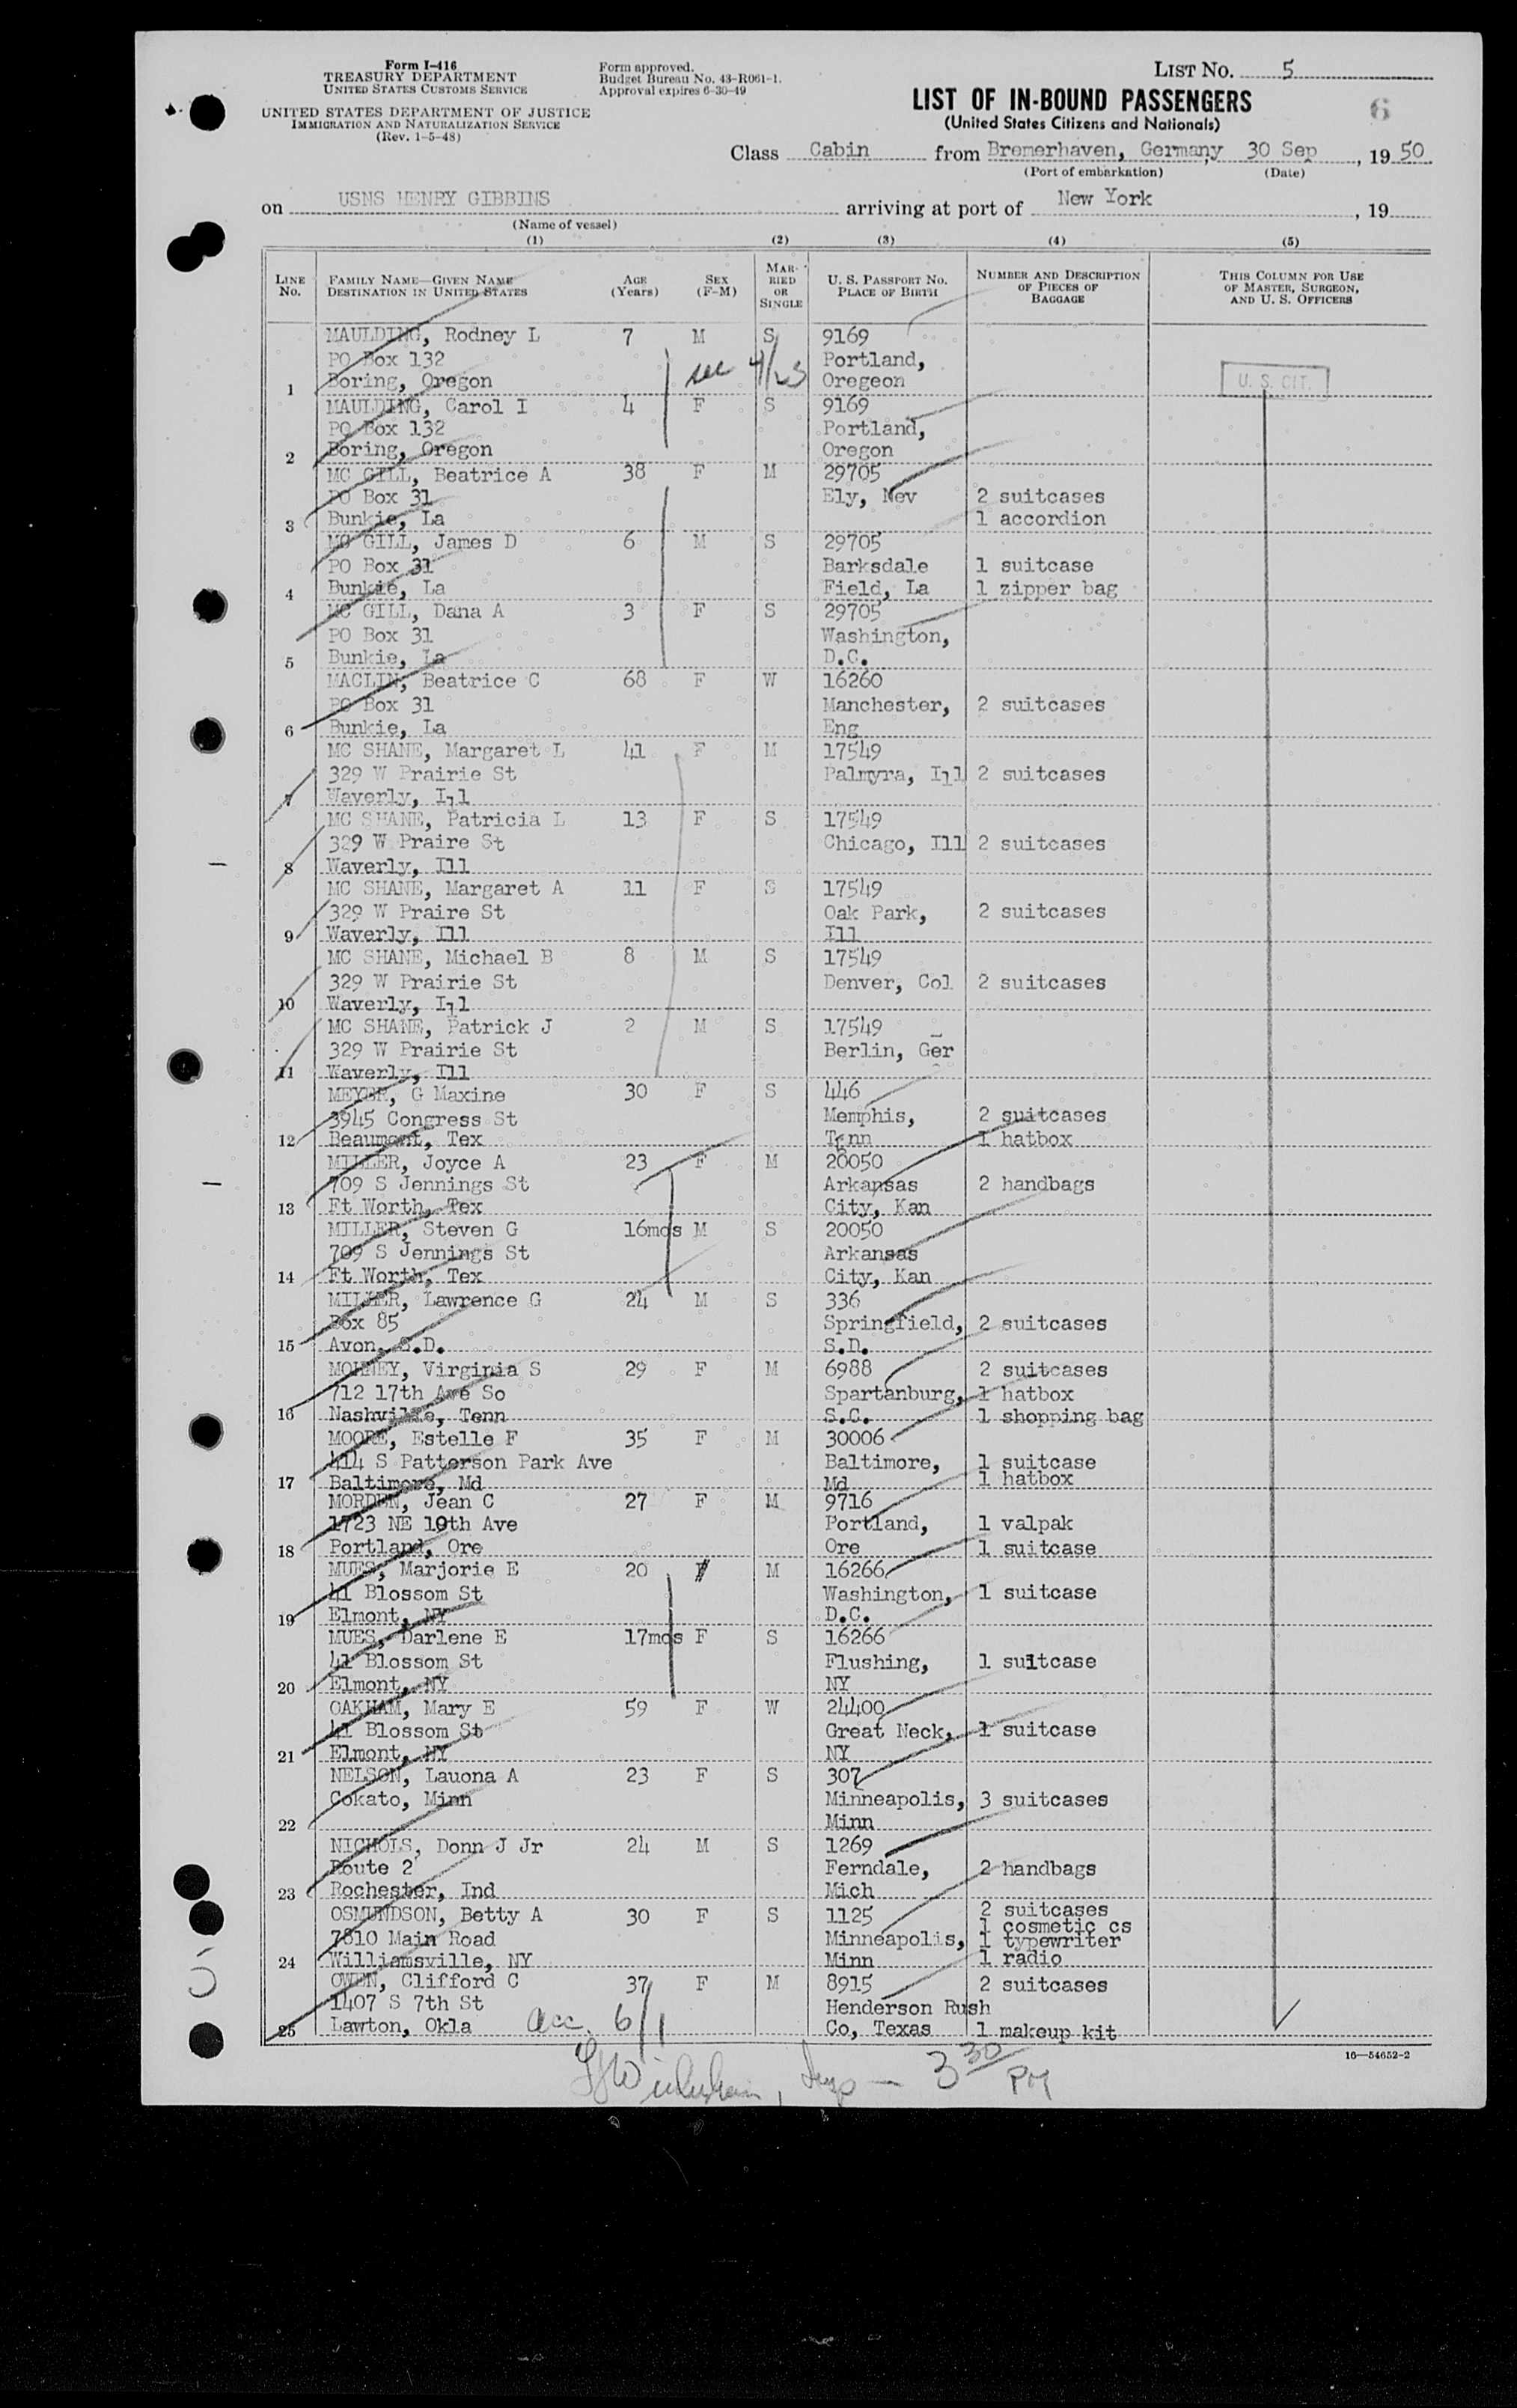 Form I-416
TREASURY DEPARTMENT
UNITED STATES CUSTOMS SERVICE
UNITED STATES DEPARTMENT OF JUSTICE
IMMIGRATION AND NATURALIZATION SERVICE
(Rev. 1-5-48)
Form approved.
Budget Bureau No. 43-R061-1.
Approval expires 6-30-49
LIST NO. 5
LIST OF IN-BOUND PASSENGERS
6
(United States Citizens and Nationals)
Class Cabin from Bremerhaven, Germany, 30 Sep, 19 50
(Port of embarkation) (Date)
on USNS HENRY GIBBINS arriving at port of New York, 19
(Name of vessel)
(1) (2) (3) (4) (5)
LINE No. FAMILY NAME—GIVEN NAME DESTINATION IN UNITED STATES AGE (Years) SEX (F-M) MARRIED OR SINGLE U. S. PASSPORT NO. PLACE OF BIRTH NUMBER AND DESCRIPTION OF PIECES OF BAGGAGE THIS COLUMN FOR USE OF MASTER, SURGEON, AND U. S. OFFICERS
MAULDING, Rodney L 7 M S 9169
PO Box 132 sec 4/23 Portland,
1 Boring, Oregon Oregeon U. S. CIT.
MAULDING, Carol I 4 F S 9169
PO Box 132 Portland,
2 Boring, Oregon Oregon
MC GILL, Beatrice A 38 F M 29705
PO Box 31 Ely, Nev 2 suitcases
3 Bunkie, La 1 accordion
MC GILL, James D 6 M S 29705
PO Box 31 Barksdale 1 suitcase
4 Bunkie, La Field, La 1 zipper bag
MC GILL, Dana A 3 F S 29705
PO Box 31 Washington,
5 Bunkie, La D.C.
MACLIN, Beatrice C 68 F W 16260
PO Box 31 Manchester, 2 suitcases
6 Bunkie, La Eng
MC SHANE, Margaret L 41 F M 17549
329 W Prairie St Palmyra, Ill 2 suitcases
7 Waverly, Ill
MC SHANE, Patricia L 13 F S 17549
329 W Praire St Chicago, Ill 2 suitcases
8 Waverly, Ill
MC SHANE, Margaret A 11 F S 17549
329 W Praire St Oak Park, 2 suitcases
9 Waverly, Ill Ill
MC SHANE, Michael B 8 M S 17549
329 W Prairie St Denver, Col 2 suitcases
10 Waverly, Ill
MC SHANE, Patrick J 2 M S 17549
329 W Prairie St Berlin, Ger
11 Waverly, Ill
MEYER, G Maxine 30 F S 446
3945 Congress St Memphis, 2 suitcases
12 Beaumont, Tex Tenn 1 hatbox
MILLER, Joyce A 23 F M 20050
709 S Jennings St Arkansas 2 handbags
13 Ft Worth, Tex City, Kan
MILLER, Steven G 16mos M S 20050
709 S Jennings St Arkansas
14 Ft Worth, Tex City, Kan
MILLER, Lawrence G 24 M S 336
Box 85 Springfield, 2 suitcases
15 Avon, S.D. S.D.
MOHNEY, Virginia S 29 F M 6988 2 suitcases
712 17th Ave So Spartanburg, 1 hatbox
16 Nashville, Tenn S.C. 1 shopping bag
MOORE, Estelle F 35 F M 30006
414 S Patterson Park Ave Baltimore, 1 suitcase
17 Baltimore, Md Md 1 hatbox
MORDEN, Jean C 27 F M 9716
1723 NE 10th Ave Portland, 1 valpak
18 Portland, Ore Ore 1 suitcase
MUES, Marjorie E 20 F M 16266
41 Blossom St Washington, 1 suitcase
19 Elmont, NY D.C.
MUES, Darlene E 17mos F S 16266
41 Blossom St Flushing, 1 suitcase
20 Elmont, NY NY
OAKHAM, Mary E 59 F W 24400
41 Blossom St Great Neck, 1 suitcase
21 Elmont, NY NY
NELSON, Lauona A 23 F S 307
Cokato, Minn Minneapolis, 3 suitcases
22 Minn
NICHOLS, Donn J Jr 24 M S 1269
Route 2 Ferndale, 2 handbags
23 Rochester, Ind Mich
OSMUNDSON, Betty A 30 F S 1125 2 suitcases
1 cosmetic cs
7810 Main Road Minneapolis, 1 typewriter
24 Williamsville, NY Minn 1 radio
OWEN, Clifford C 37 F M 8915 2 suitcases
1407 S 7th St Henderson Rush
25 Lawton, Okla acc. 6/1 Co, Texas 1 makeup kit
16—54652-2
3 30 PM